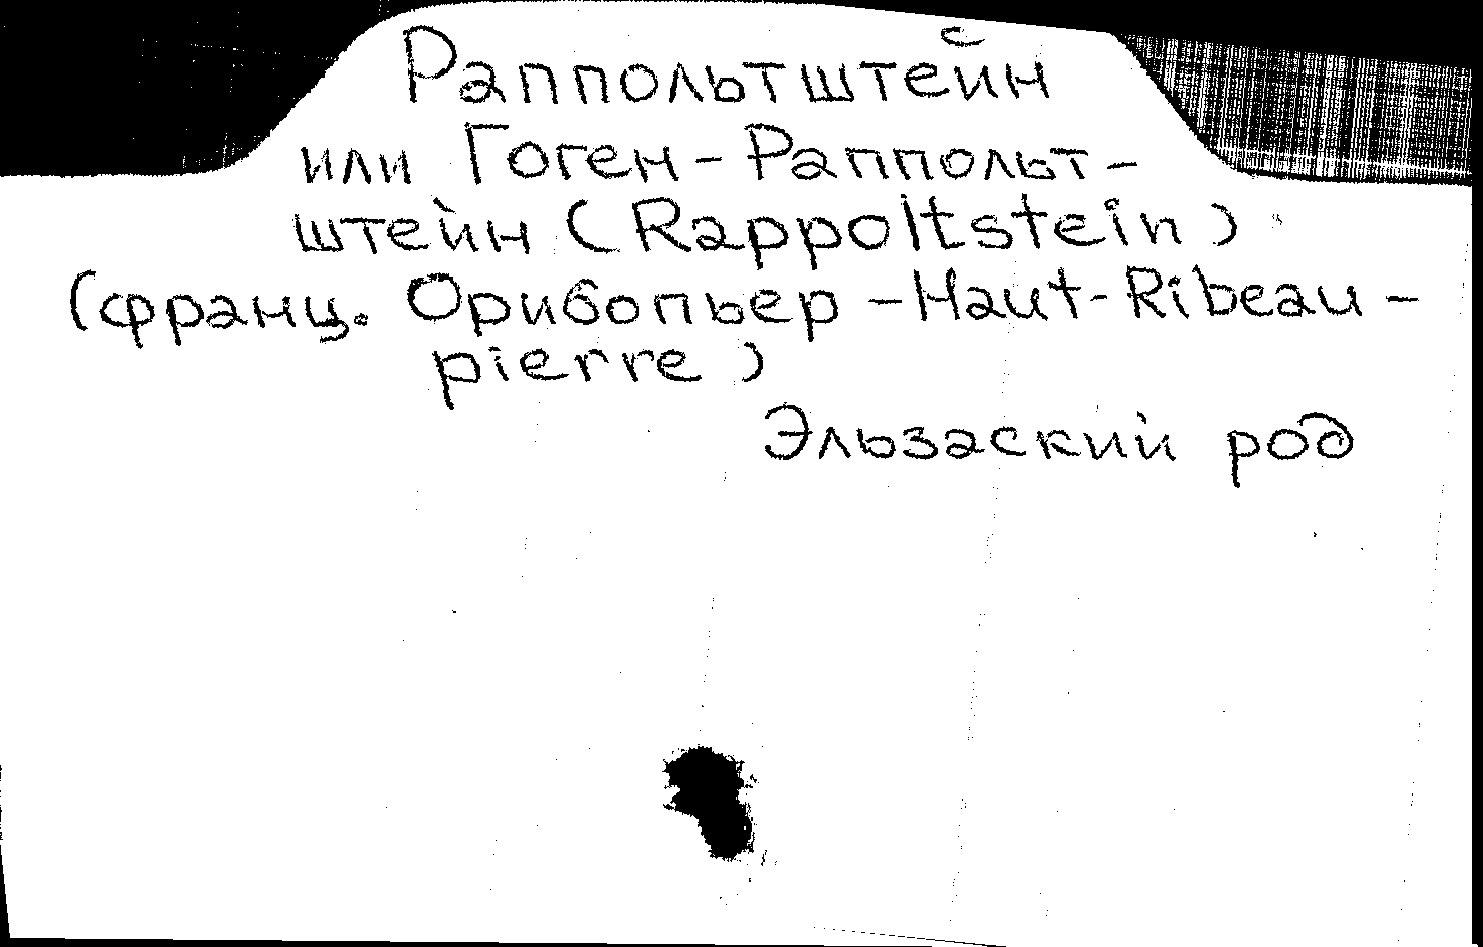 Раппольтштейн
или Гоген-Раппольт-
штейн (Rappoltstein)
(франц. Орибопьер - Haut-Ribeau-
pierre)
Эльзаский род